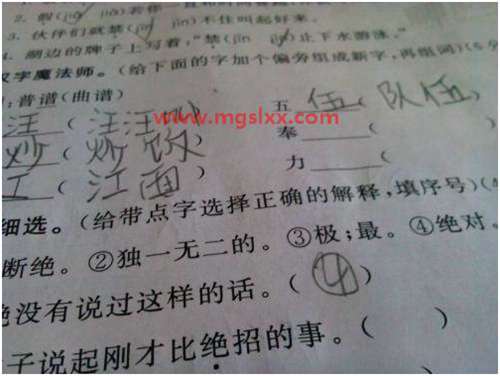 3. 伙伴们就禁(jīn jìn)不住叫起好来。
4. 湖边的牌子上写着，“禁(jīn jìn)止下水游泳。”
汉字魔法师。(给下面的字加个偏旁组成新字，再组词)(6分
;普谱(曲谱)
汪(汪汪 五 伍(队伍
www.mgslxx.com
炒(炒饭 奉 (
工(江面) 力 (
细选。(给带点字选择正确的解释，填序号)(4
断绝。②独一无二的。③极；最。④绝对。
绝没有说过这样的话。(④)
子说起刚才比绝招的事。( )